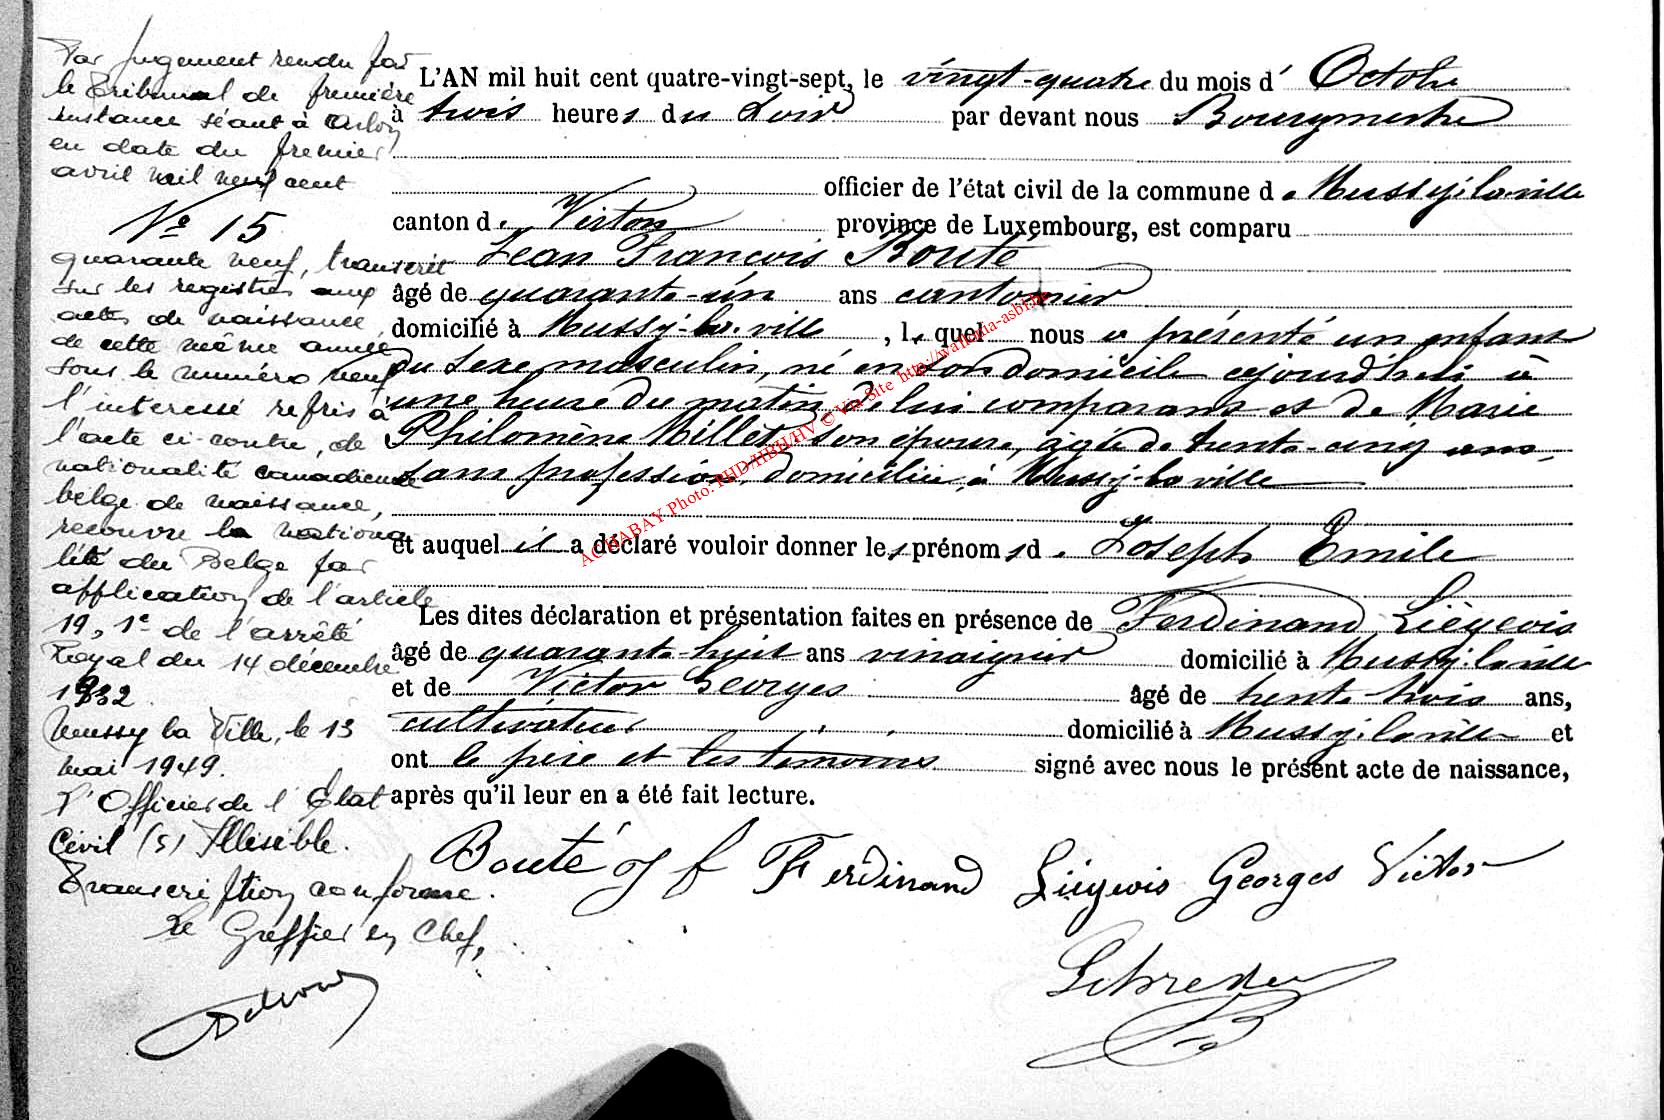 Par jugement rendu par
le Tribunal de première
instance séant à Arlon
en date du premier
avril mil neuf cent
N° 15
quarante neuf, transcrit
sur les registres aux
actes de naissance,
de cette même année
sous le numéro neuf
l'interessé repris à
l'acte ci-contre, de
nationalité canadienne
belge de naissance,
recouvre la nationa
lité du Belge par
application de l'article
19, 1° de l'arrêté
Royal du 14 décembre
1932
Mussy la Ville, le 13
mai 1949.
L'Officier de l'Etat
Civil (s) Illisible.
Transcription conforme.
Le Greffier en Chef,
L'AN mil huit cent quatre-vingt-sept, le vingt-quatre du mois d' Octobre
à trois heures du Soir par devant nous Bourgmestre
officier de l'état civil de la commune de Mussy-la-ville
canton de Virton province de Luxembourg, est comparu
Jean François Bouté
âgé de quarante-un ans cantonnier
domicilié à Mussy-la-ville, lequel nous a présenté un enfant
du sexe masculin, né en son domicile cejourd'hui à
une heure du matin, de lui comparant et de Marie
Philomène Millet, son épouse, âgée de trente-cinq ans,
sans profession, domiciliée à Mussy-la-ville
et auquel il a déclaré vouloir donner les prénoms de Joseph Emile
Les dites déclaration et présentation faites en présence de Ferdinand Liégeois
âgé de quarante-huit ans vinaigrier domicilié à Mussy-la-ville
et de Victor Georges âgé de trente-trois ans,
cultivateur domicilié à Mussy-la-ville et
ont le père et les témoins signé avec nous le présent acte de naissance,
après qu'il leur en a été fait lecture.
Bouté j f Ferdinand Liégeois Georges Victor
ACHABAY Photo: PHD/HBH/HV © Via Site http://wallonia-asbl.be